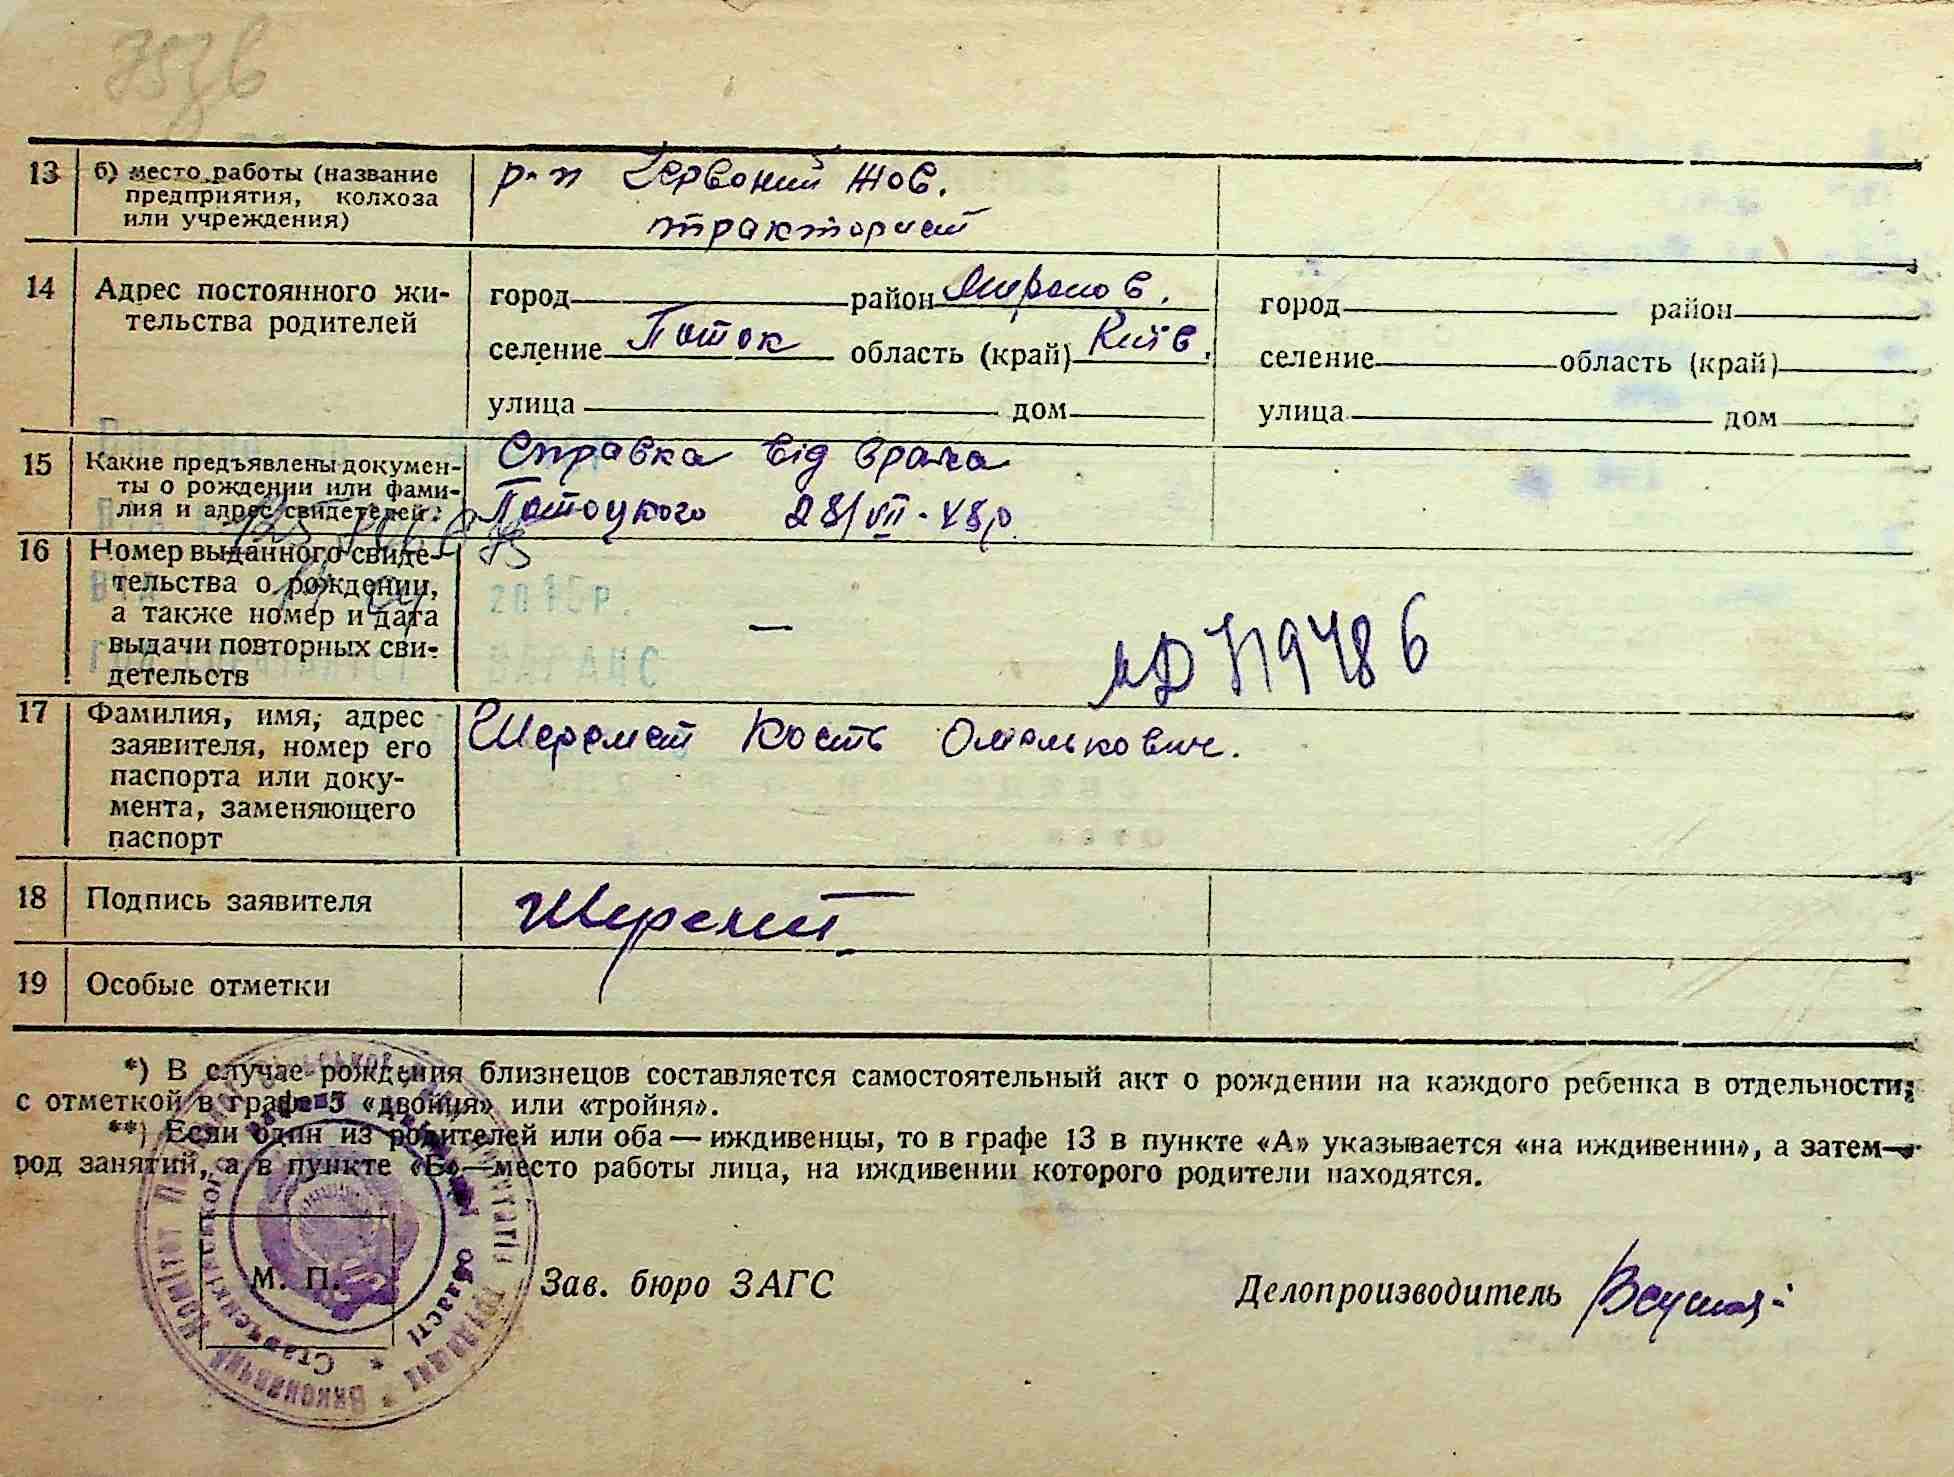 13 б) место работы (название
предприятия, колхоза
или учреждения)
Червоний Жов.
тракторист
14 Адрес постоянного жи-
тельства родителей
город район Миронов.
селение Поток область (край) Київ.
улица дом
город район
селение область (край)
улица дом
15 Какие предъявлены докумен-
ты о рождении или фами-
лия и адрес свидетелей:
Справка від врача
Потоцкого 28/VII-48р.
16 Номер выданного свиде-
тельства о рождении,
а также номер и дата
выдачи повторных сви-
детельств
2015р.
—
719486
17 Фамилия, имя, адрес
заявителя, номер его
паспорта или доку-
мента, заменяющего
паспорт
Шеремет Кость Омелькович.
18 Подпись заявителя
Шеремет
19 Особые отметки
*) В случае рождения близнецов составляется самостоятельный акт о рождении на каждого ребенка в отдельности;
с отметкой в графе 5 «двойня» или «тройня».
**) Если один из родителей или оба — иждивенцы, то в графе 13 в пункте «А» указывается «на иждивении», а затем—
род занятий, а в пункте «Б»—место работы лица, на иждивении которого родители находятся.
М. П.
Зав. бюро ЗАГС
Делопроизводитель